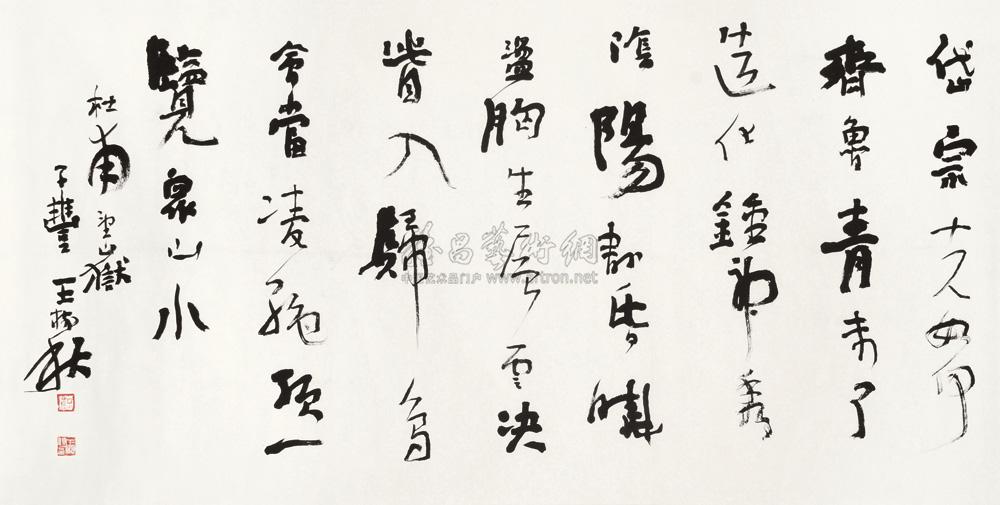 岱宗夫如何
齊魯青未了
造化鍾神秀
陰陽割昏曉
盪胸生層雲決
眥入歸鳥
會當凌絕頂一
覽眾山小
杜甫望嶽
豐王秋
雅昌藝術網
中国艺术品门户 artron.net